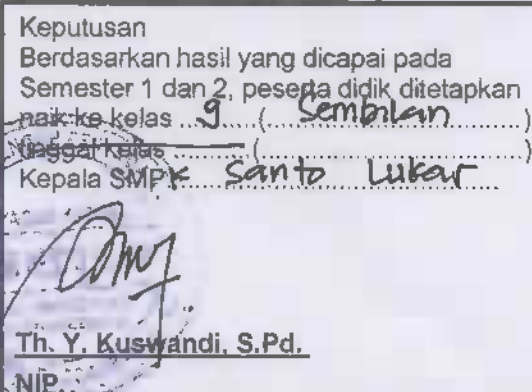 Keputusan
Berdasarkan hasil yang dicapai pada
Semester 1 dan 2, peserta didik ditetapkan
naik ke kelas ...9...... ( ...Sembilan............)
tinggal kelas ............ (................................)
Kepala SMP K Santo Lukas
Th. Y. Kuswandi, S.Pd.
NIP.